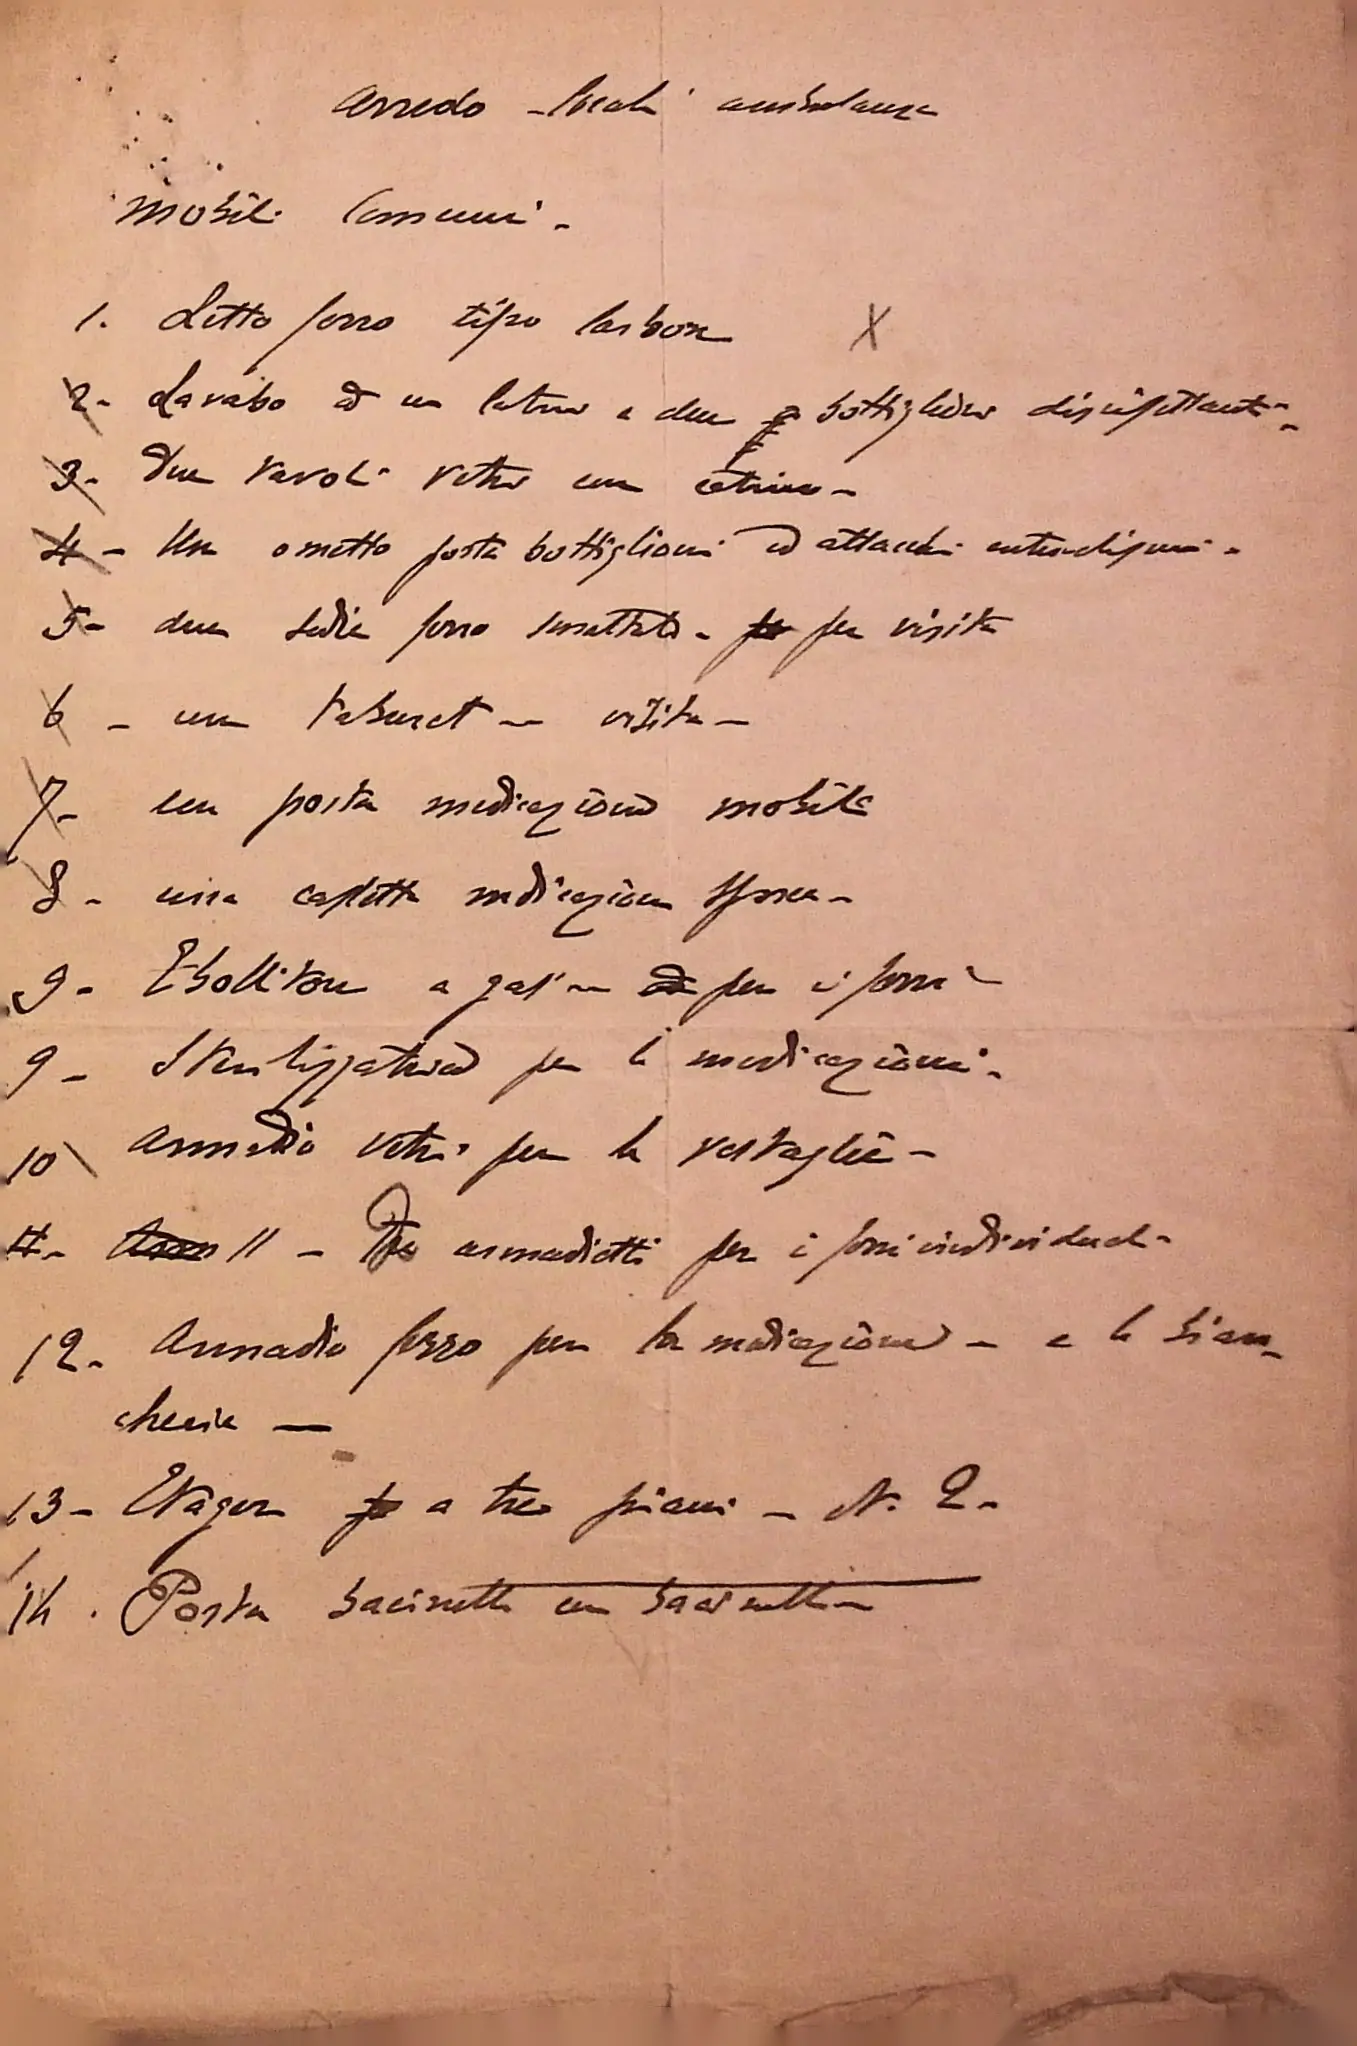 Arredo locali ambulanza
Mobili Comuni.
1. Letto ferro tipo X
2- Lavabo ad un e due bottiglie disinfettanti-
3- Due tavoli vetro con
4- Un ometto porta bottiglioni ed attacchi
5- due sedie ferro smaltato - per visita
6 - un Taburet - visita -
7- un porta medicazione mobile
8 - una medicazione sporca -
9- Ebollitore a gas - per i ferri
9 - Sterilizzatrice per le medicazioni.
10 Armadio vetri per la
11 - armadietti per i ferri individuali -
12. Armadio ferro per la medicazione - e la bian-
cheria —
13- Etager a tre piani - N. 2 -
14. Porta bacinelle con bacinelle -